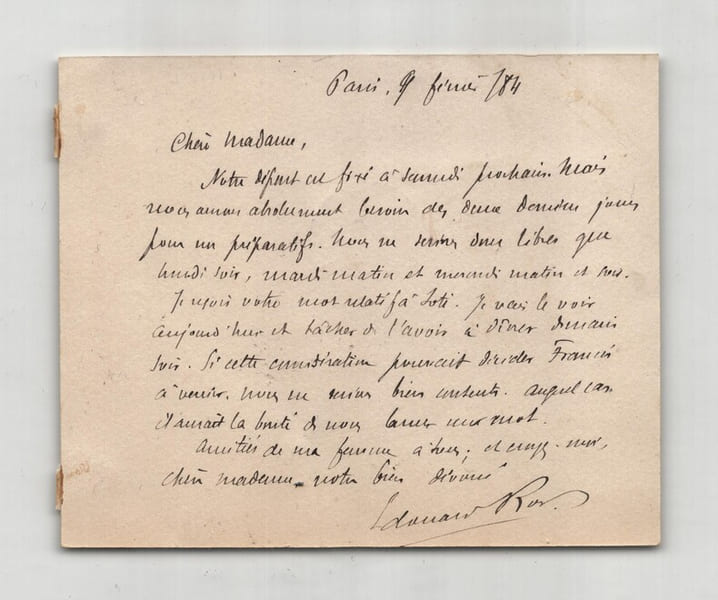 Paris, 9 février /84
Chère Madame,
Notre départ est fixé à samedi prochain. Mais
nous avons absolument besoin des deux derniers jours
pour nos préparatifs. Nous ne serions donc libres que
lundi soir, mardi matin et mercredi matin et soir.
Je reçois votre mot relatif à Loti. Je vais le voir
aujourd'hui et tâcher de l'avoir à dîner demain
soir. Si cette considération pouvait décider Francis
à venir, nous en serions bien contents. auquel cas
il aurait la bonté de nous lancer un mot.
Amitiés de ma femme à tous, et croyez-moi,
chère madame, notre bien dévoué
Edouard Rod.